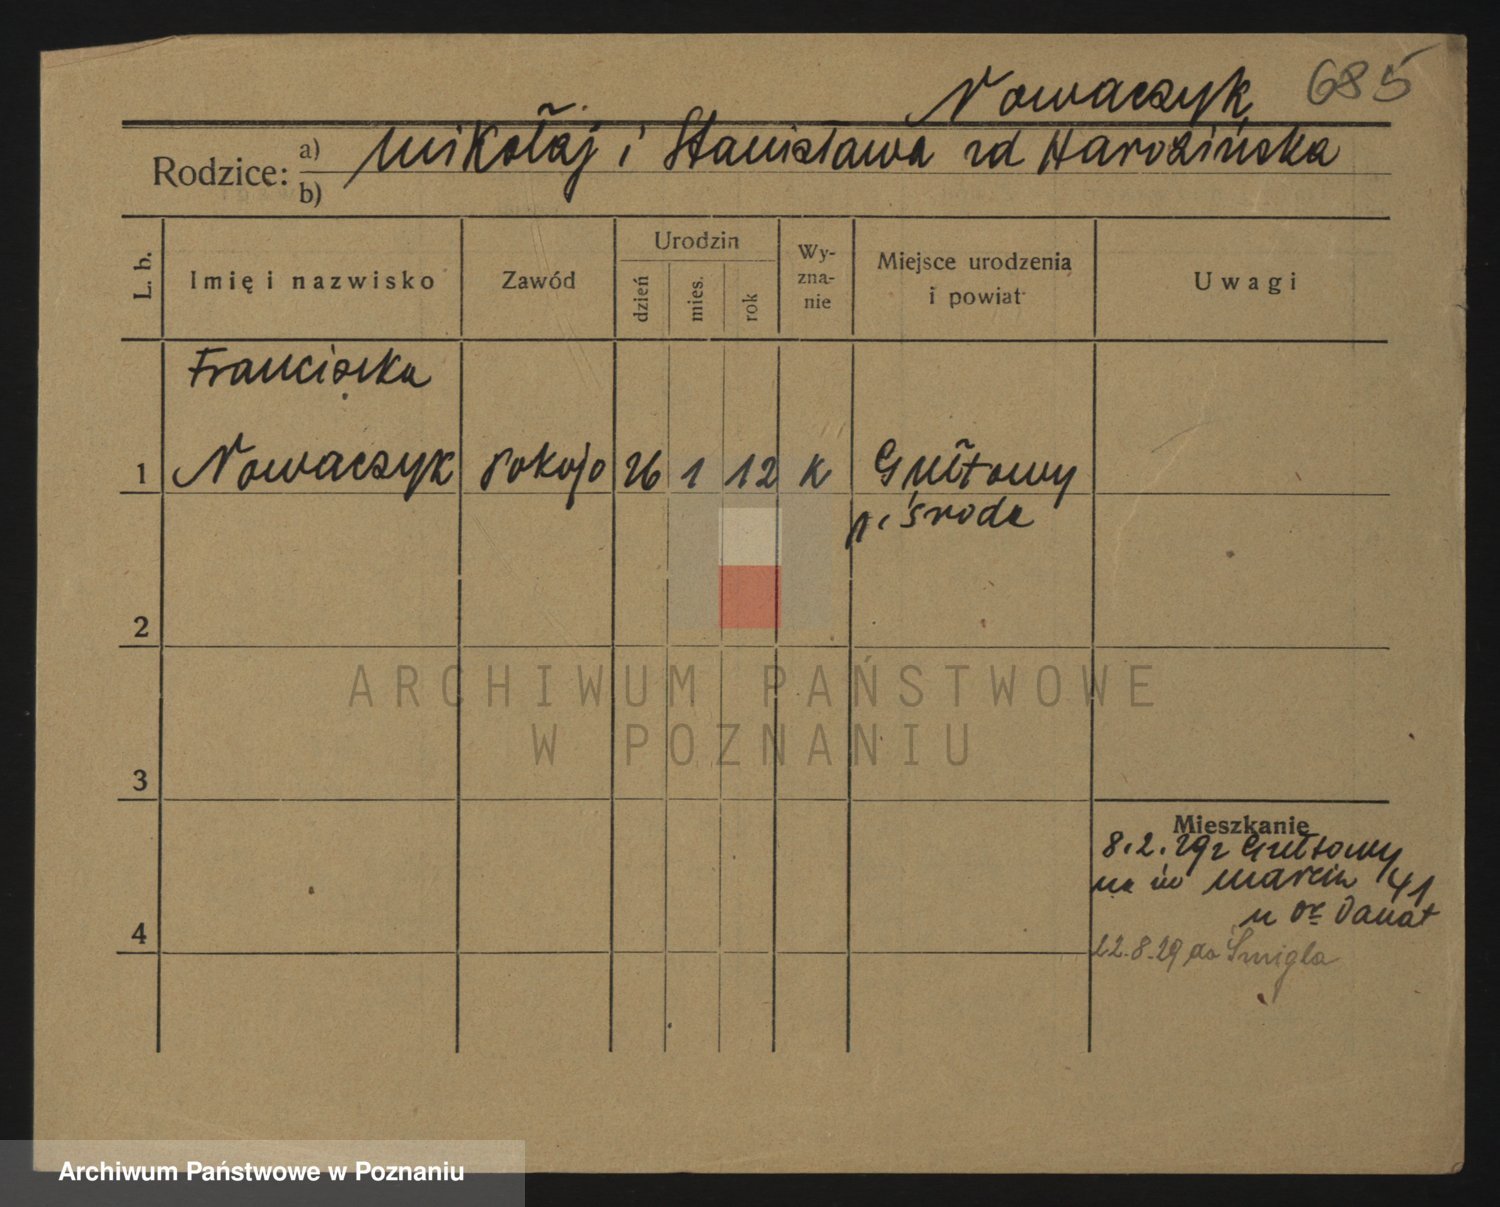 Nowaczyk 685
Rodzice: a) Mikołaj i Stanisława zd Harozińska
b)
L. b. Imię i nazwisko Zawód Urodzin dzień mies. rok Wy-zna-nie Miejsce urodzenia i powiat Uwagi
Franciszka
1 Nowaczyk Pokojo 26 1 12 K Gułtowy
p. Środa
2
ARCHIWUM PAŃSTWOWE
W POZNANIU
3
Mieszkanie
8.2.29r Gułtowy
na św Marcin 41
u Danat
4
22.8.29 do Śmigla
Archiwum Państwowe w Poznaniu